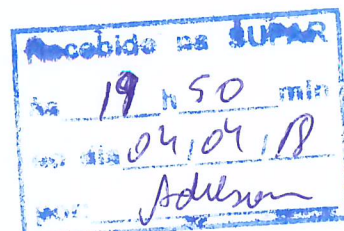 Recebido na SUPAR
às 19 h 50 min
no dia 04/04/18
por: Adelson